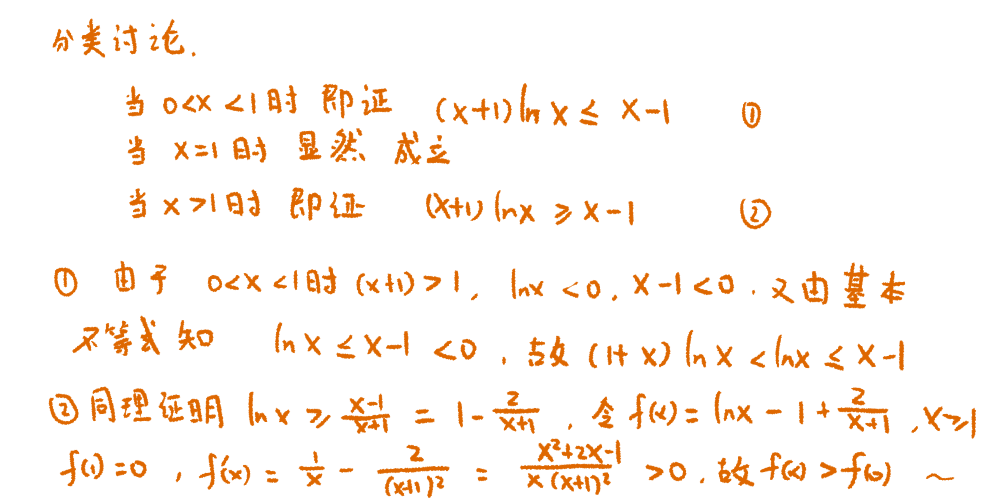 分类讨论.
当 0<x<1时 即证 (x+1)ln x ≤ x-1 ①
当 x=1时 显然 成立
当 x>1时 即证 (x+1)lnx ≥ x-1 ②
① 由于 0<x<1时 (x+1)>1, lnx<0, x-1<0. 又由基本
不等式知 ln x ≤ x-1 <0, 故 (1+x)ln x < ln x ≤ x-1
② 同理证明 ln x ≥ \frac{x-1}{x+1} = 1-\frac{2}{x+1}, 令 f(x) = ln x - 1 + \frac{2}{x+1}, x≥1
f(1)=0, f'(x) = \frac{1}{x} - \frac{2}{(x+1)^2} = \frac{x^2+2x-1}{x(x+1)^2} >0. 故 f(x) > f(0) ~